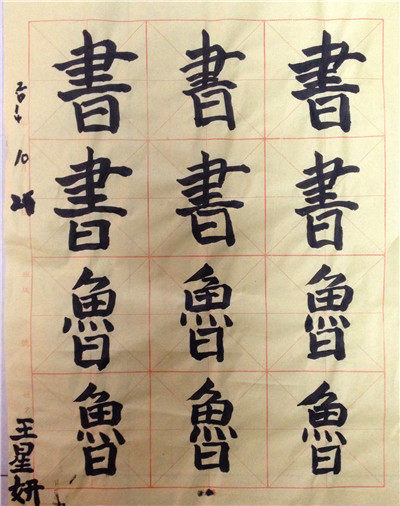 書書書
書書書
魯魯魯
魯魯魯
2014
10
王星妍